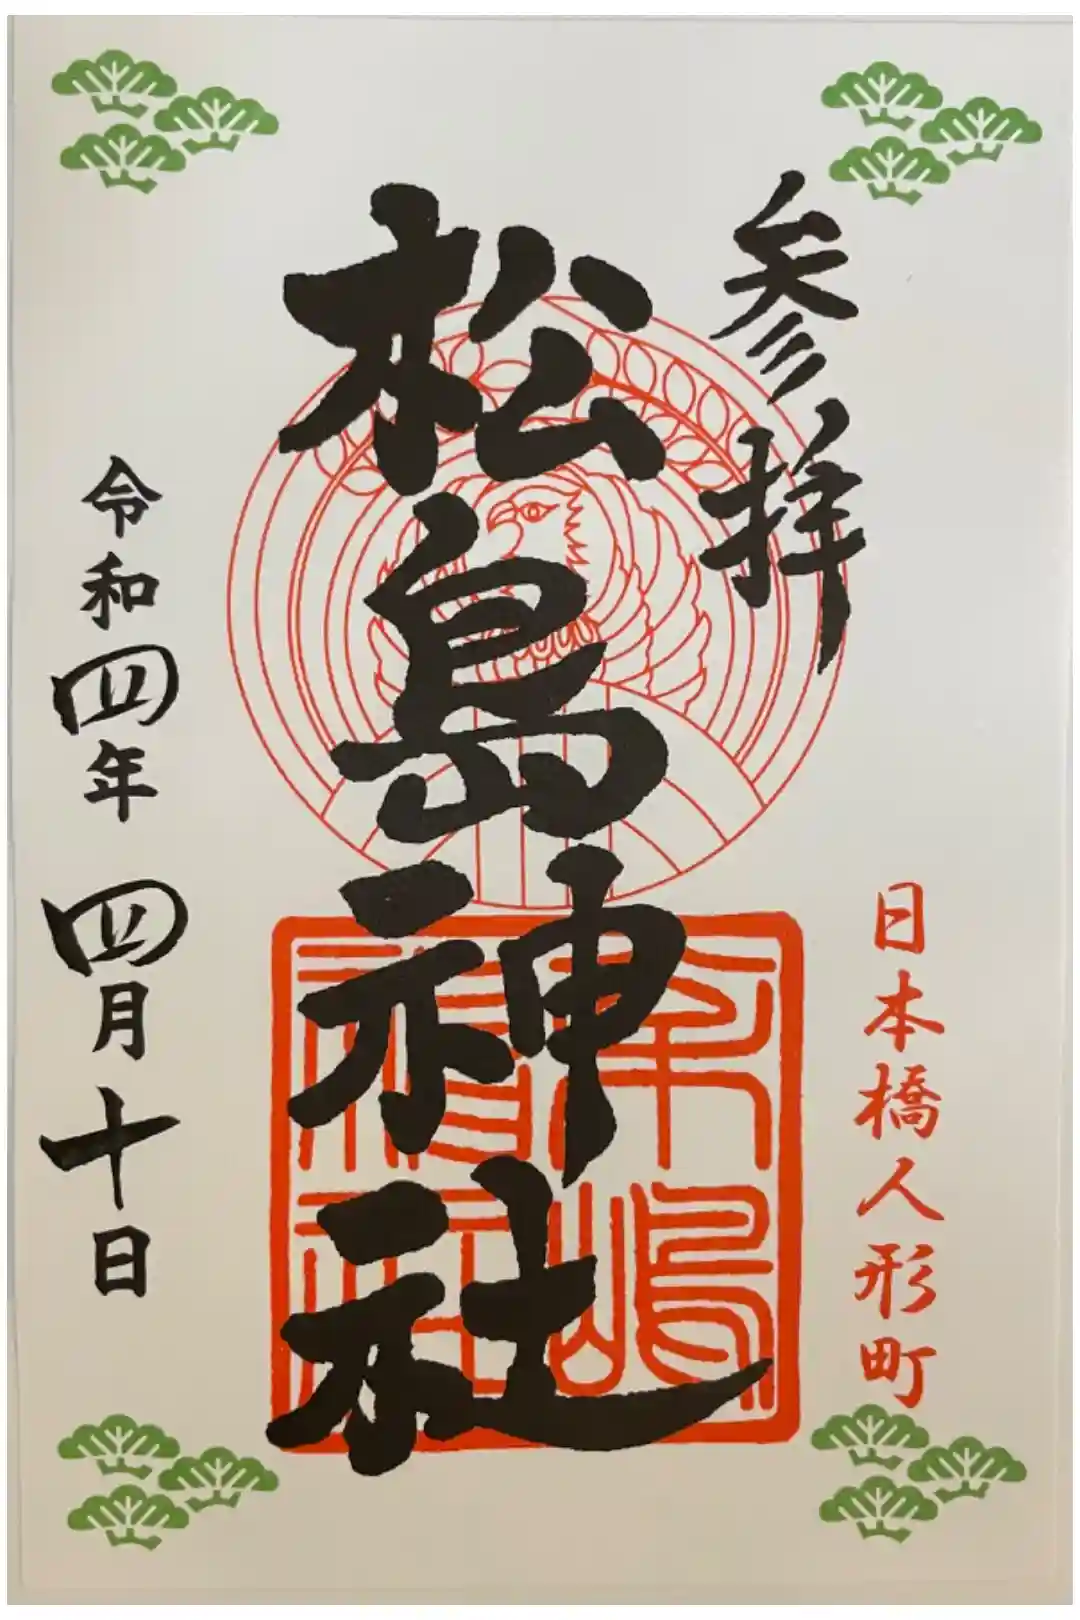 参拝
日本橋人形町
松島神社
令和四年 四月十日